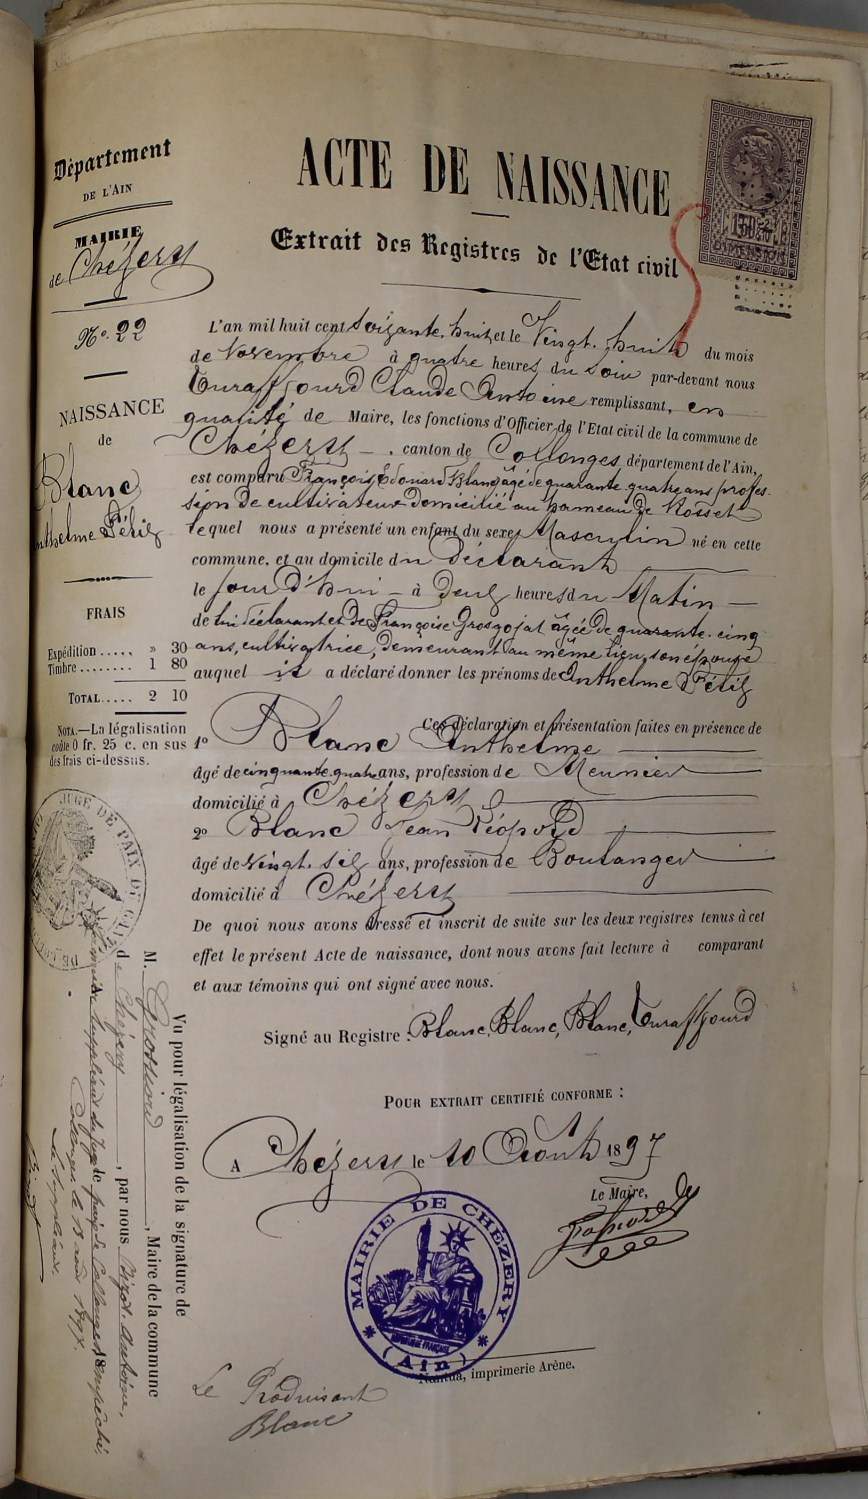 Département
DE L'AIN
MAIRIE
de Chézery
No. 22
NAISSANCE
de
Blanc
Anthelme Félix
FRAIS
Expédition ..... » 30
Timbre ........ 1 80
TOTAL..... 2 10
NOTA.—La légalisation
coûte 0 fr. 25 c. en sus
des frais ci-dessus.
ACTE DE NAISSANCE
Extrait des Registres de l'Etat civil
L'an mil huit cent soixante-huit et le Vingt-huit du mois
de Novembre à quatre heures du soir par-devant nous
Turaffourd Claude Antoine remplissant, en
qualité de Maire, les fonctions d'Officier de l'Etat civil de la commune de
Chézery — . canton de Collonges, département de l'Ain,
est comparu François Edouard Blanc âgé de quarante quatre ans profes-
sion de cultivateur domicilié au hameau de Rosset
lequel nous a présenté un enfant du sexe Masculin né en cette
commune. et au domicile du Déclarant
le jour d'hui — à deux heures du Matin —
de lui déclarant et de Françoise Grosgojat âgée de quarante-cinq
ans, cultivatrice, demeurant au même lieu, son épouse
auquel il a déclaré donner les prénoms de Anthelme Félix
Ces déclaration et présentation faites en présence de
1o Blanc Anthelme
âgé de cinquante quatre ans, profession de Meunier
domicilié à Chézery
2o Blanc Jean Léopold
âgé de Vingt-six ans, profession de Boulanger
domicilié à Chézery
De quoi nous avons dressé et inscrit de suite sur les deux registres tenus à cet
effet le présent Acte de naissance, dont nous avons fait lecture à comparant
et aux témoins qui ont signé avec nous.
Signé au Registre : Blanc, Blanc, Blanc, Turaffourd
POUR EXTRAIT CERTIFIÉ CONFORME :
A Chézery le 10 Août 1897
Le Maire,
MAIRIE DE CHEZERY
(Ain)
Nantua, imprimerie Arène.
Le Produisant
Blanc
Vu pour légalisation de la signature de
M. Grossiord, Maire de la commune
de Chézery, par nous Antoine,
Suppléant du Juge de paix de Collonges empêché,
Collonges le 13 août 1897.
Le Suppléant.
JUGE DE PAIX DE
DIMENSION